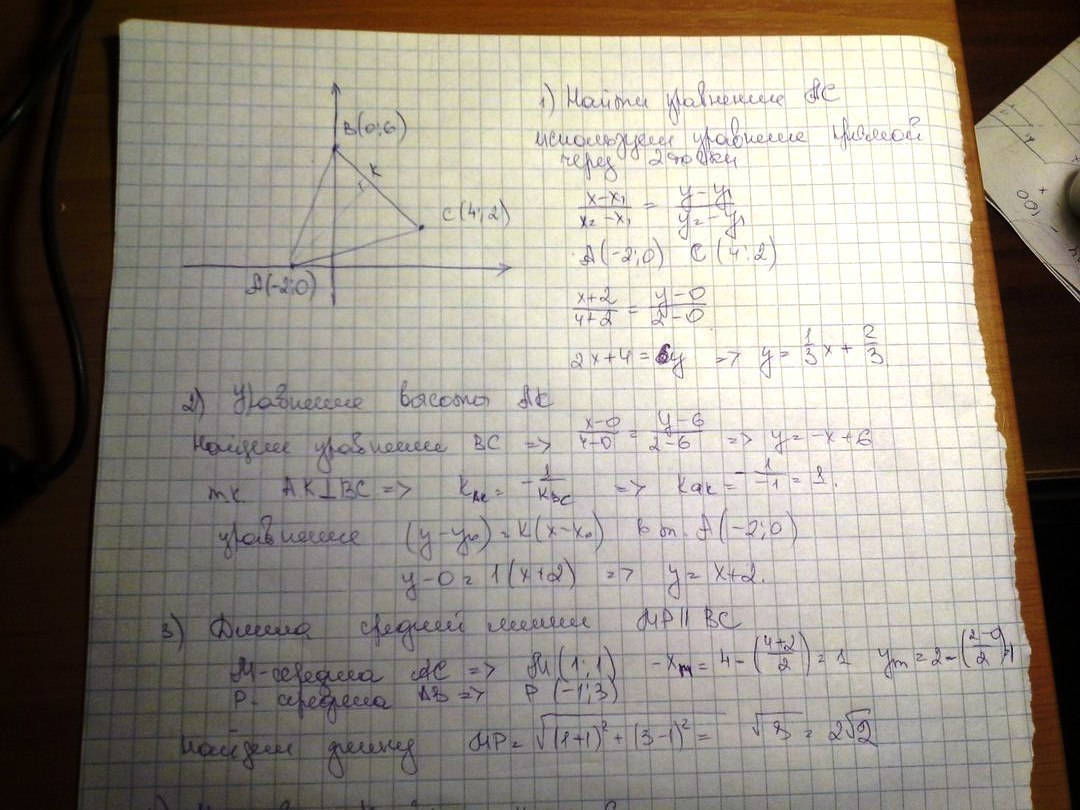 B(0;6)
K
C(4;2)
A(-2;0)
1) Найти уравнение AC
используем уравнение прямой
через 2 точки
(x-x₁)/(x₂-x₁) = (y-y₁)/(y₂-y₁)
A(-2;0) C(4;2)
(x+2)/(4+2) = (y-0)/(2-0)
2x+4=6y => y = 1/3 x + 2/3.
2) Уравнение высоты AK
Найдем уравнение BC => (x-0)/(4-0) = (y-6)/(2-6) => y=-x+6
тк AK⊥BC => K_AK = -1/K_BC => K_AK = -1/-1 = 1.
уравнение (y-y₀)=K(x-x₀) в т. A(-2;0)
y-0=1(x+2) => y=x+2.
3) Длина средней линии MP||BC
M-середина AC => M(1;1) -x_M=4-((4+2)/2)=1 y_M=2-((2-0)/2)=1
P-середина AB => P(-1;3)
Найдем длину MP=√((1+1)²+(3-1)²)= √8 = 2√2
100